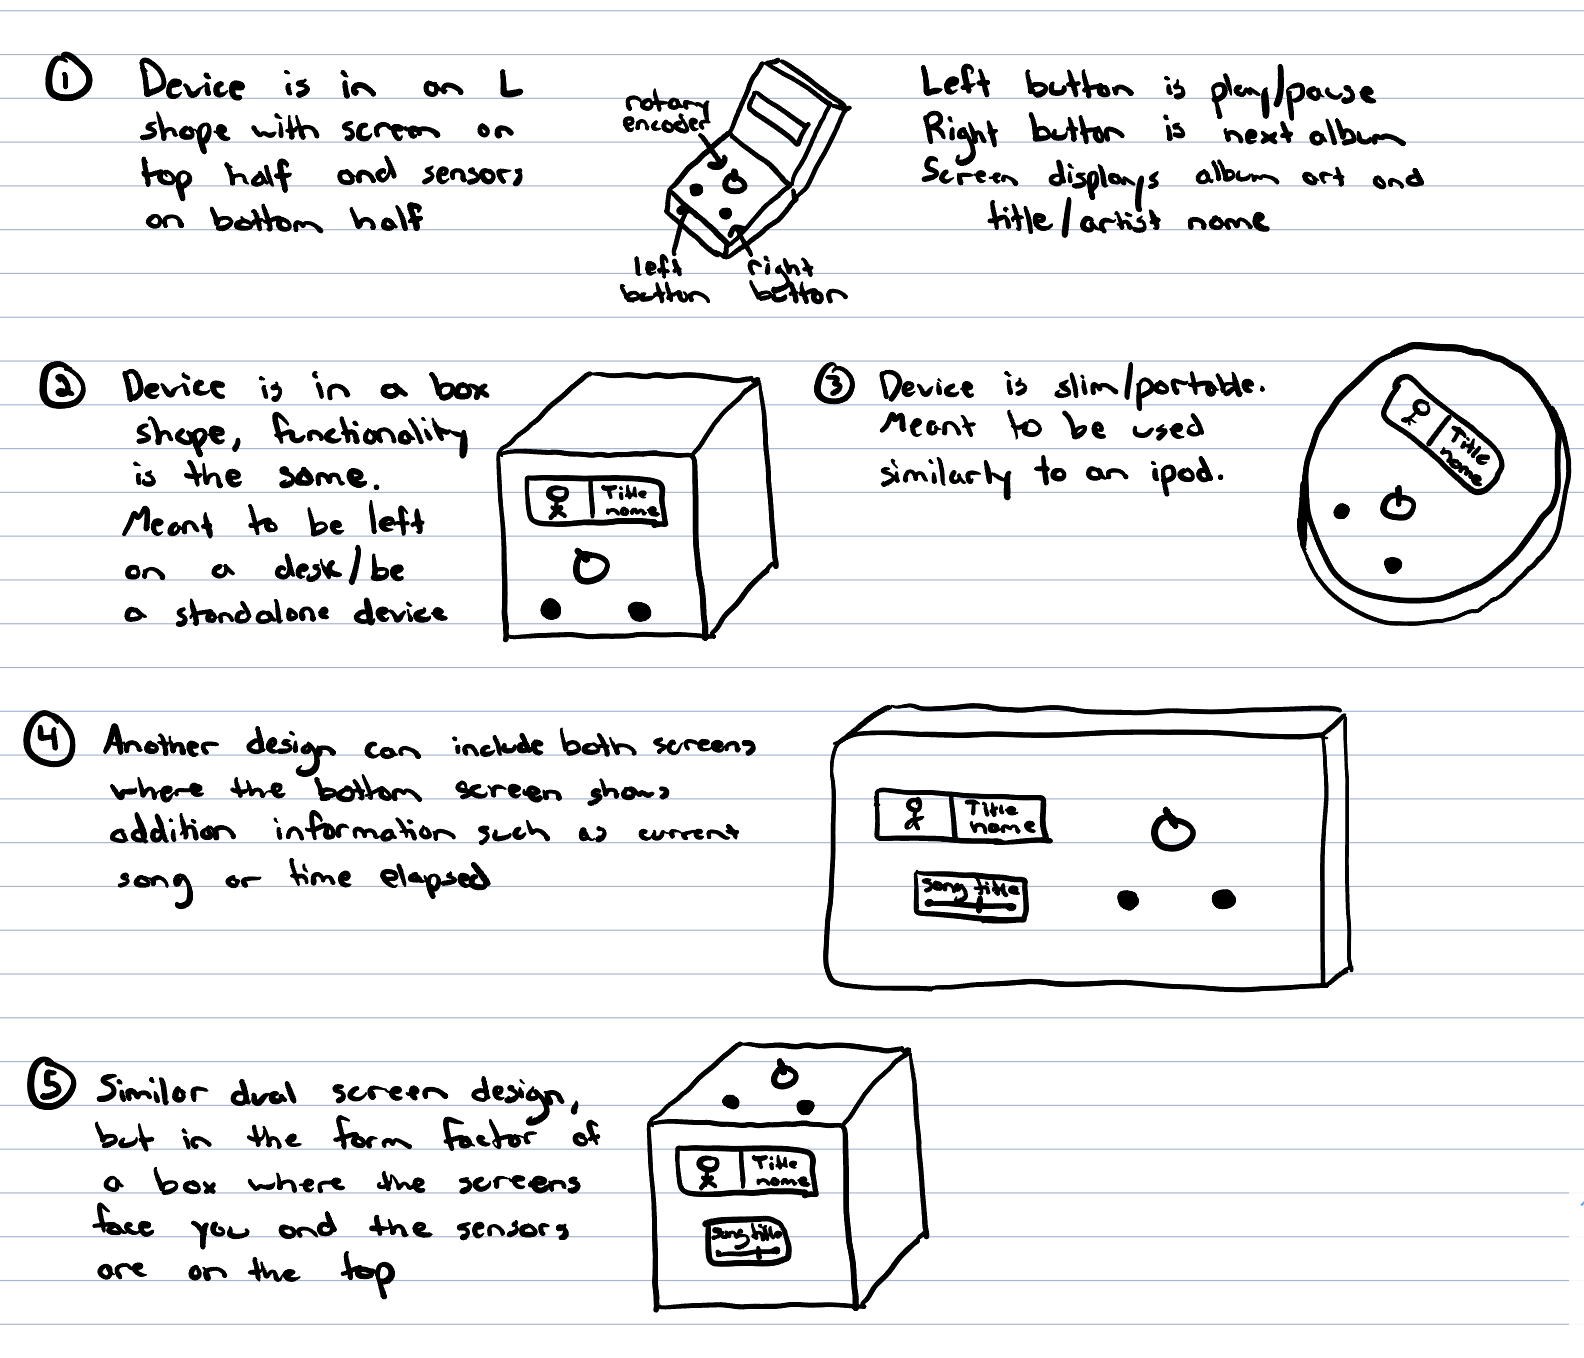 ① Device is in an L
shape with screen on
top half and sensors
on bottom half
rotary
encoder
left
button
right
button
Left button is play/pause
Right button is next album
Screen displays album art and
title/artist name
② Device is in a box
shape, functionality
is the same.
Meant to be left
on a desk/be
a standalone device
Title
name
③ Device is slim/portable.
Meant to be used
similarly to an ipod.
Title
name
④ Another design can include both screens
where the bottom screen shows
addition information such as current
song or time elapsed
Title
name
song title
⑤ Similar dual screen design,
but in the form factor of
a box where the screens
face you and the sensors
are on the top
Title
name
song title